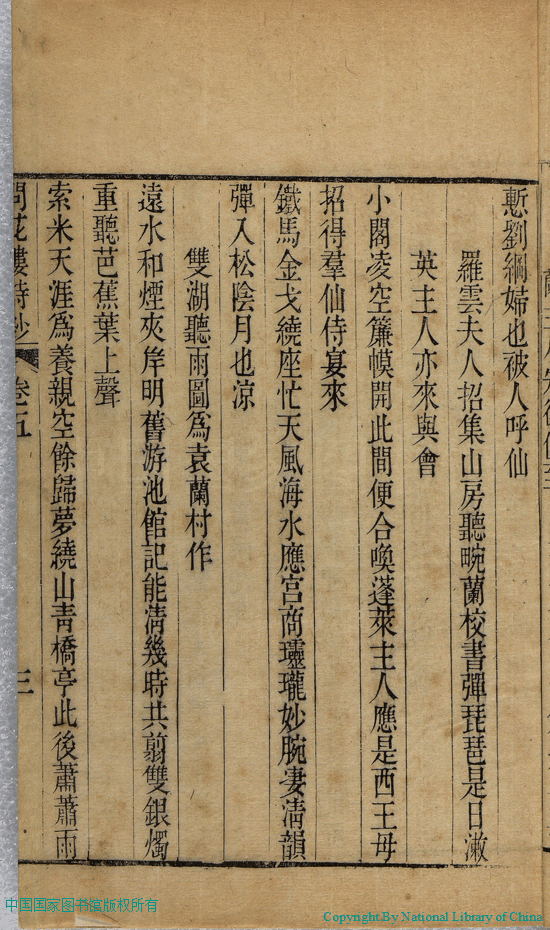 慙劉綱婦也被人呼仙
羅雲夫人招集山房聽畹蘭校書彈琵琶是日漱
英主人亦來與會
小閣凌空簾幙開此間便合喚蓬萊主人應是西王母
招得羣仙侍宴來
鐵馬金戈繞座忙天風海水應宮商瓏妙腕凄清韻
彈入松陰月也凉
雙湖聽雨圖爲袁蘭村作
遠水和煙夾岸明舊游池館記能淸幾時共翦雙銀燭
重聽芭蕉葉上聲
索米天涯爲養親空餘歸夢繞山靑橋亭此後蕭蕭雨
問花樓詩鈔 卷五 三
中国国家图书馆版权所有
Copyright By National Library of China